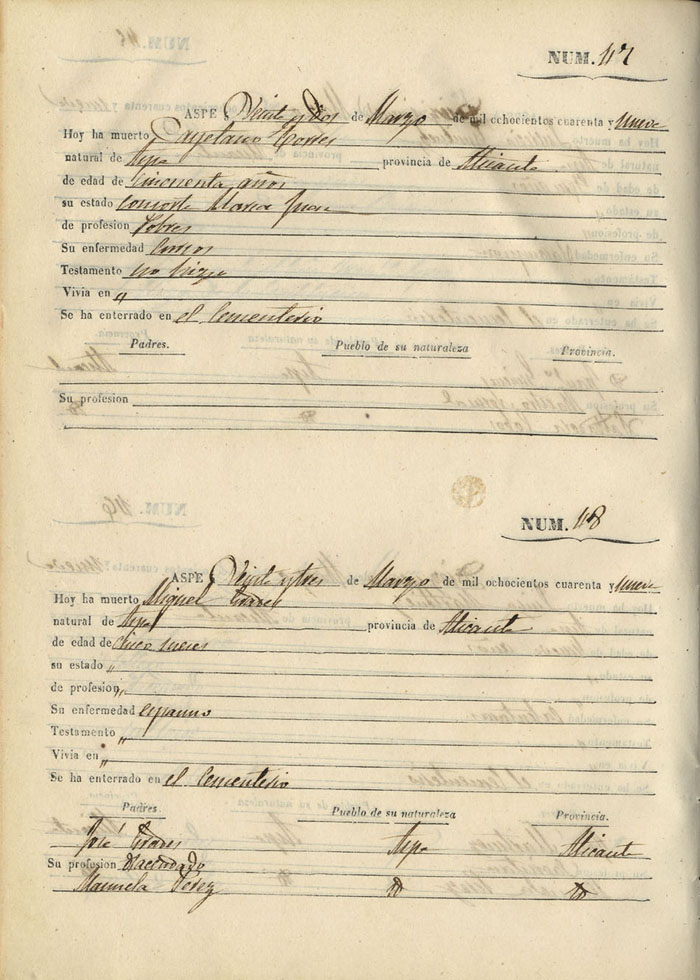 NUM. 47
ASPE Veinte y dos de Marzo de mil ochocientos cuarenta y nueve
Hoy ha muerto Cayetano Cortes
natural de Aspe provincia de Alicante
de edad de Cincuenta años
su estado Consorte Maria
de profesion Pobres
Su enfermedad
Testamento no hizo
Vivia en "
Se ha enterrado en el Cementerio
Padres. Pueblo de su naturaleza Provincia.
Su profesion
NUM. 48
ASPE Veinte y tres de Marzo de mil ochocientos cuarenta y nueve
Hoy ha muerto Miguel
natural de Aspe provincia de Alicante
de edad de Cinco meses
su estado "
de profesion "
Su enfermedad espasmo
Testamento "
Vivia en "
Se ha enterrado en el Cementerio
Padres. Pueblo de su naturaleza Provincia.
José Aspe Alicante
Su profesion Hacendado
Manuela Perez